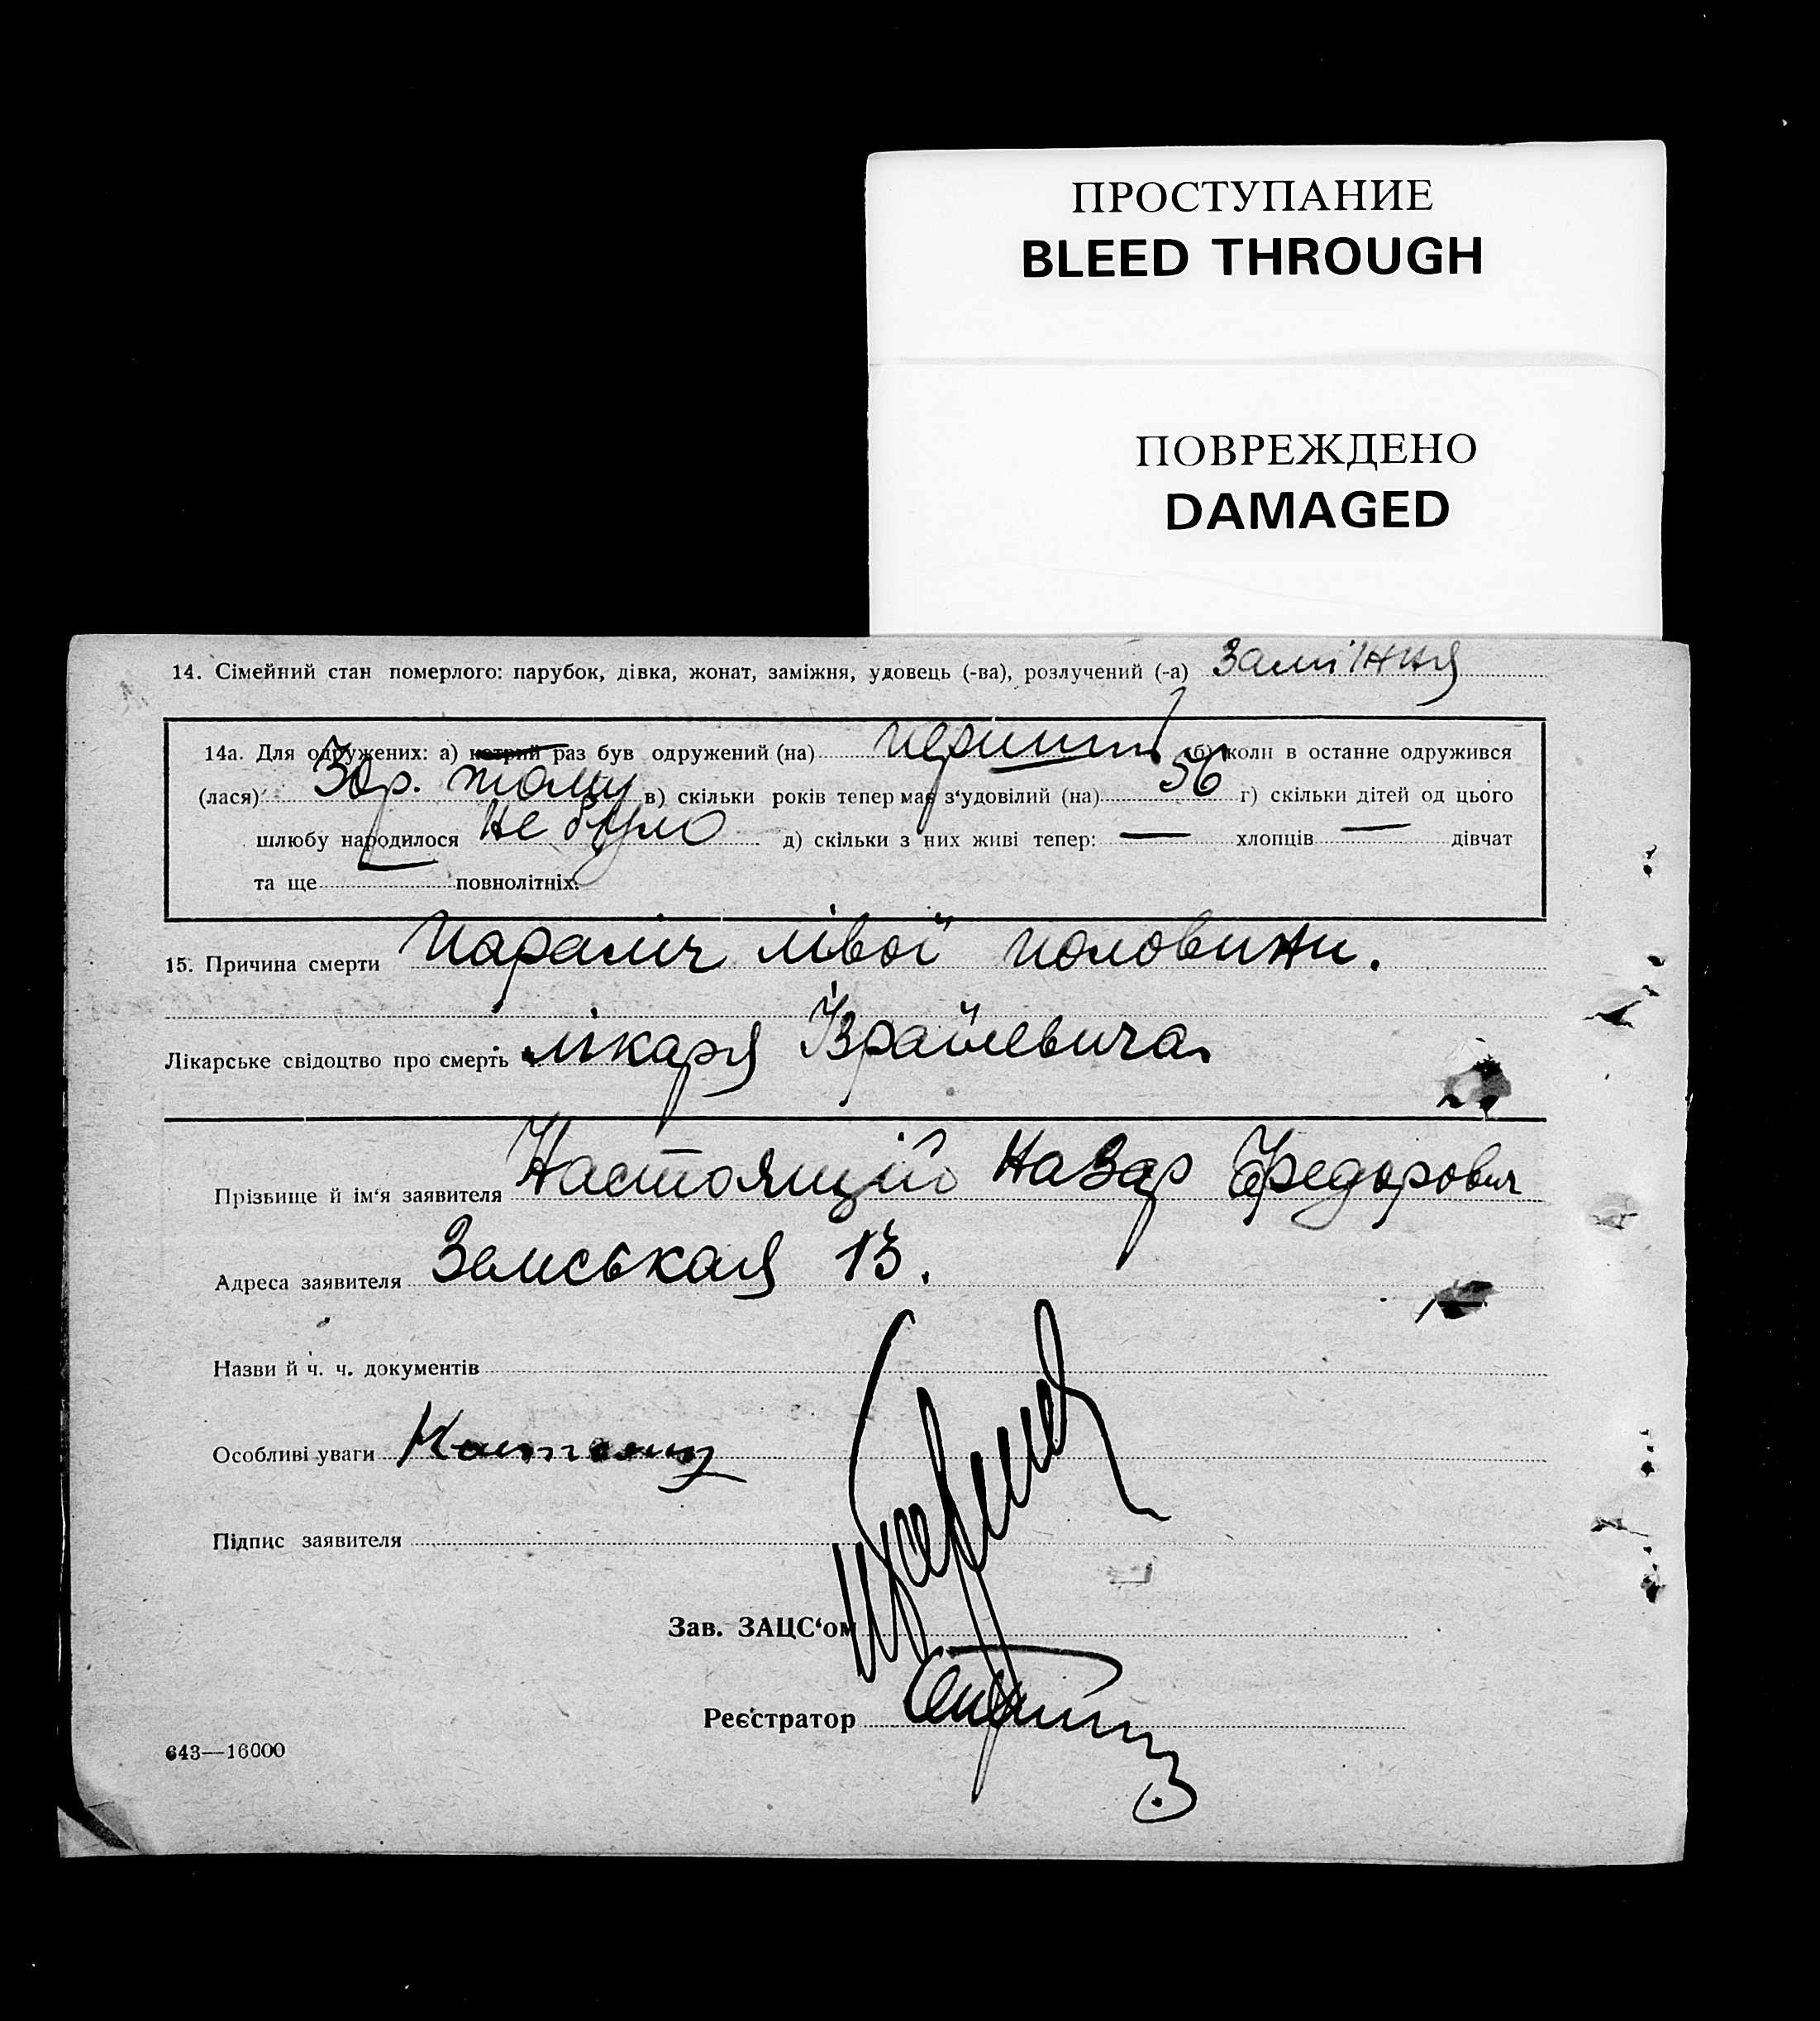 ПРОСТУПАНИЕ
BLEED THROUGH
ПОВРЕЖДЕНО
DAMAGED
14. Сімейний стан померлого: парубок, дівка, жонат, заміжня, удовець (-ва), розлучений (-а) Замі́жня
14а. Для одружених: а) котрий раз був одружений (на) перший б) коли в останнє одружився
(лася) 30 р. тому в) скільки років тепер має з'удовілий (на) 56 г) скільки дітей од цього
шлюбу народилося не було д) скільки з них живі тепер: — хлопців — дівчат
та ще — повнолітніх.
15. Причина смерти Параліч лівої половини.
Лікарське свідоцтво про смерть ч. лікаря
Прізвище й ім'я заявителя Настоящій Назар Федорович
Адреса заявителя Земськая 13.
Назви й ч. ч. документів
Особливі уваги
Підпис заявителя
Зав. ЗАЦС'ом
Реєстратор
643—16000